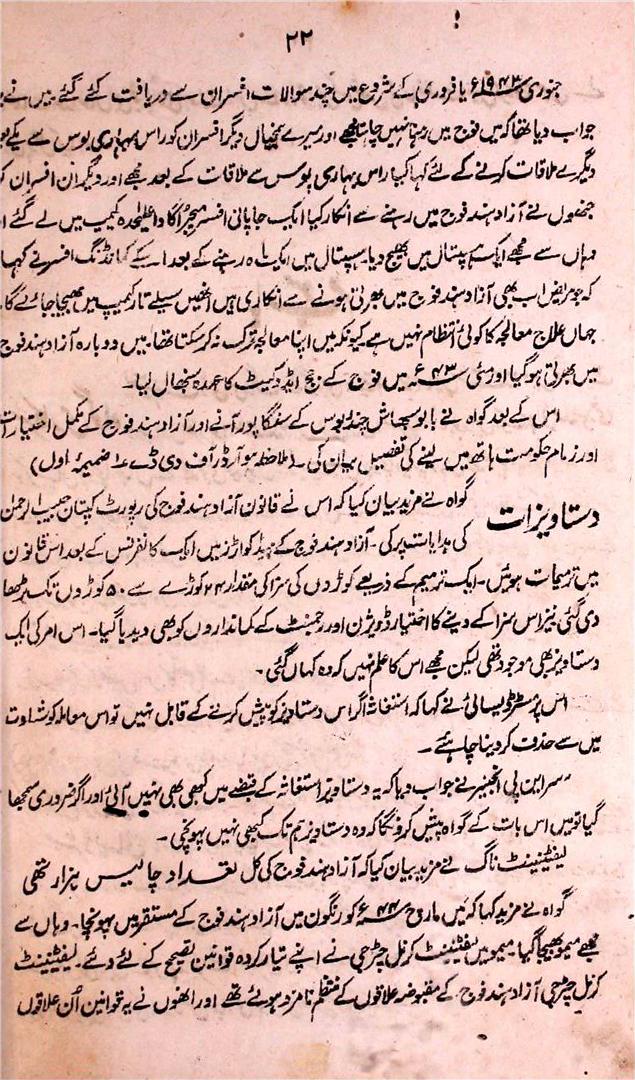 ۲۲
جنوری ۱۹۴۳ء یا فروری کے شروع میں چند سوالات افسران سے دریافت کئے گئے میں نے
جواب دیا تھا کہ میں فوج میں رہنا نہیں چاہتا مجھے اور میرے ہمخیال دیگر افسران کو راس بہاری بوس سے یکے
دیگرے ملاقات کرنے کے لئے کہا گیا راس بہاری بوس سے ملاقات کے بعد مجھے اور دیگر ان افسران کو
جنھوں نے آزاد ہند فوج میں رہنے سے انکار کیا ایک جاپانی افسر میجر اگاوا علیٰحدہ کیمپ میں لے گئے
وہاں سے مجھے ایک ہسپتال میں بھیج دیا۔ ہسپتال میں ایک ماہ رہنے کے بعد اسکے کمانڈنگ افسر نے کہا
کہ جو مریض اب بھی آزاد ہند فوج میں بھرتی ہونے سے انکاری ہیں انھیں سیلے تار کیمپ میں بھیجا جائے گا
جہاں علاج معالجہ کا کوئی انتظام نہیں ہے۔ کیونکہ میں اپنا معالجہ ترک نہ کر سکتا تھا۔ میں دوبارہ آزاد ہند فوج
میں بھرتی ہو گیا اور مئی ۴۳ء میں فوج کے جج ایڈوکیٹ کا عہدہ سنبھال لیا۔
اس کے بعد گواہ نے بابو سبھاش چندر بوس کے سنگاپور آنے اور آزاد ہند فوج کے مکمل اختیارات
اور زمام حکومت ہاتھ میں لینے کی تفصیل بیان کی۔ (ملاحظہ ہو آرڈر آف دی ڈے ۱ ضمیمہ اول)
دستاویزات گواہ نے مزید بیان کیا کہ اس نے قانون آزاد ہند فوج کی رپورٹ کپتان حبیب الرحمن
کی ہدایات پر کی۔ آزاد ہند فوج کے ہیڈ کوارٹرز میں ایک کانفرنس کے بعد اس قانون
میں ترمیمات ہوئیں۔ ایک ترمیم کے ذریعے کوڑوں کی سزا کی مقدار ۲۴ کوڑے سے ۵۰ کوڑوں تک بڑھا
دی گئی نیز اس سزا کے دینے کا اختیار ڈویژن اور رجمنٹ کے کمانداروں کو بھی دیدیا گیا۔ اس امر کی ایک
دستاویز بھی موجود تھی لیکن مجھے اس کا علم نہیں کہ وہ کہاں گئی۔
اس پر مسٹر ڈیسائی نے کہا کہ استغاثہ اگر اس دستاویز کو پیش کرنے کے قابل نہیں تو اس معاملہ کو شہادت
میں سے حذف کر دینا چاہئے۔
سر این پی انجنیر نے جواب دیا کہ یہ دستاویز استغاثہ کے قبضے میں کبھی بھی نہیں آئی اور اگر ضروری سمجھا
گیا تو میں اس بات کے گواہ پیش کرونگا کہ وہ دستاویز ہم تک کبھی نہیں پہونچی۔
لیفٹیننٹ ناگ نے مزید بیان کیا کہ آزاد ہند فوج کی کل تعداد چالیس ہزار تھی
گواہ نے مزید کہا کہ میں مارچ ۴۴ء کو رنگون میں آزاد ہند فوج کے مستقر میں پہونچا۔ وہاں سے
مجھے میمو بھیجا گیا۔ میمو میں لفٹیننٹ کرنل چٹرجی نے اپنے تیار کردہ قوانین تصحیح کے لئے دئے۔ لیفٹیننٹ
کرنل چٹرجی آزاد ہند فوج کے مقبوضہ علاقوں کے منتظم نامزد ہوئے تھے اور انھوں نے یہ قوانین اُن علاقوں